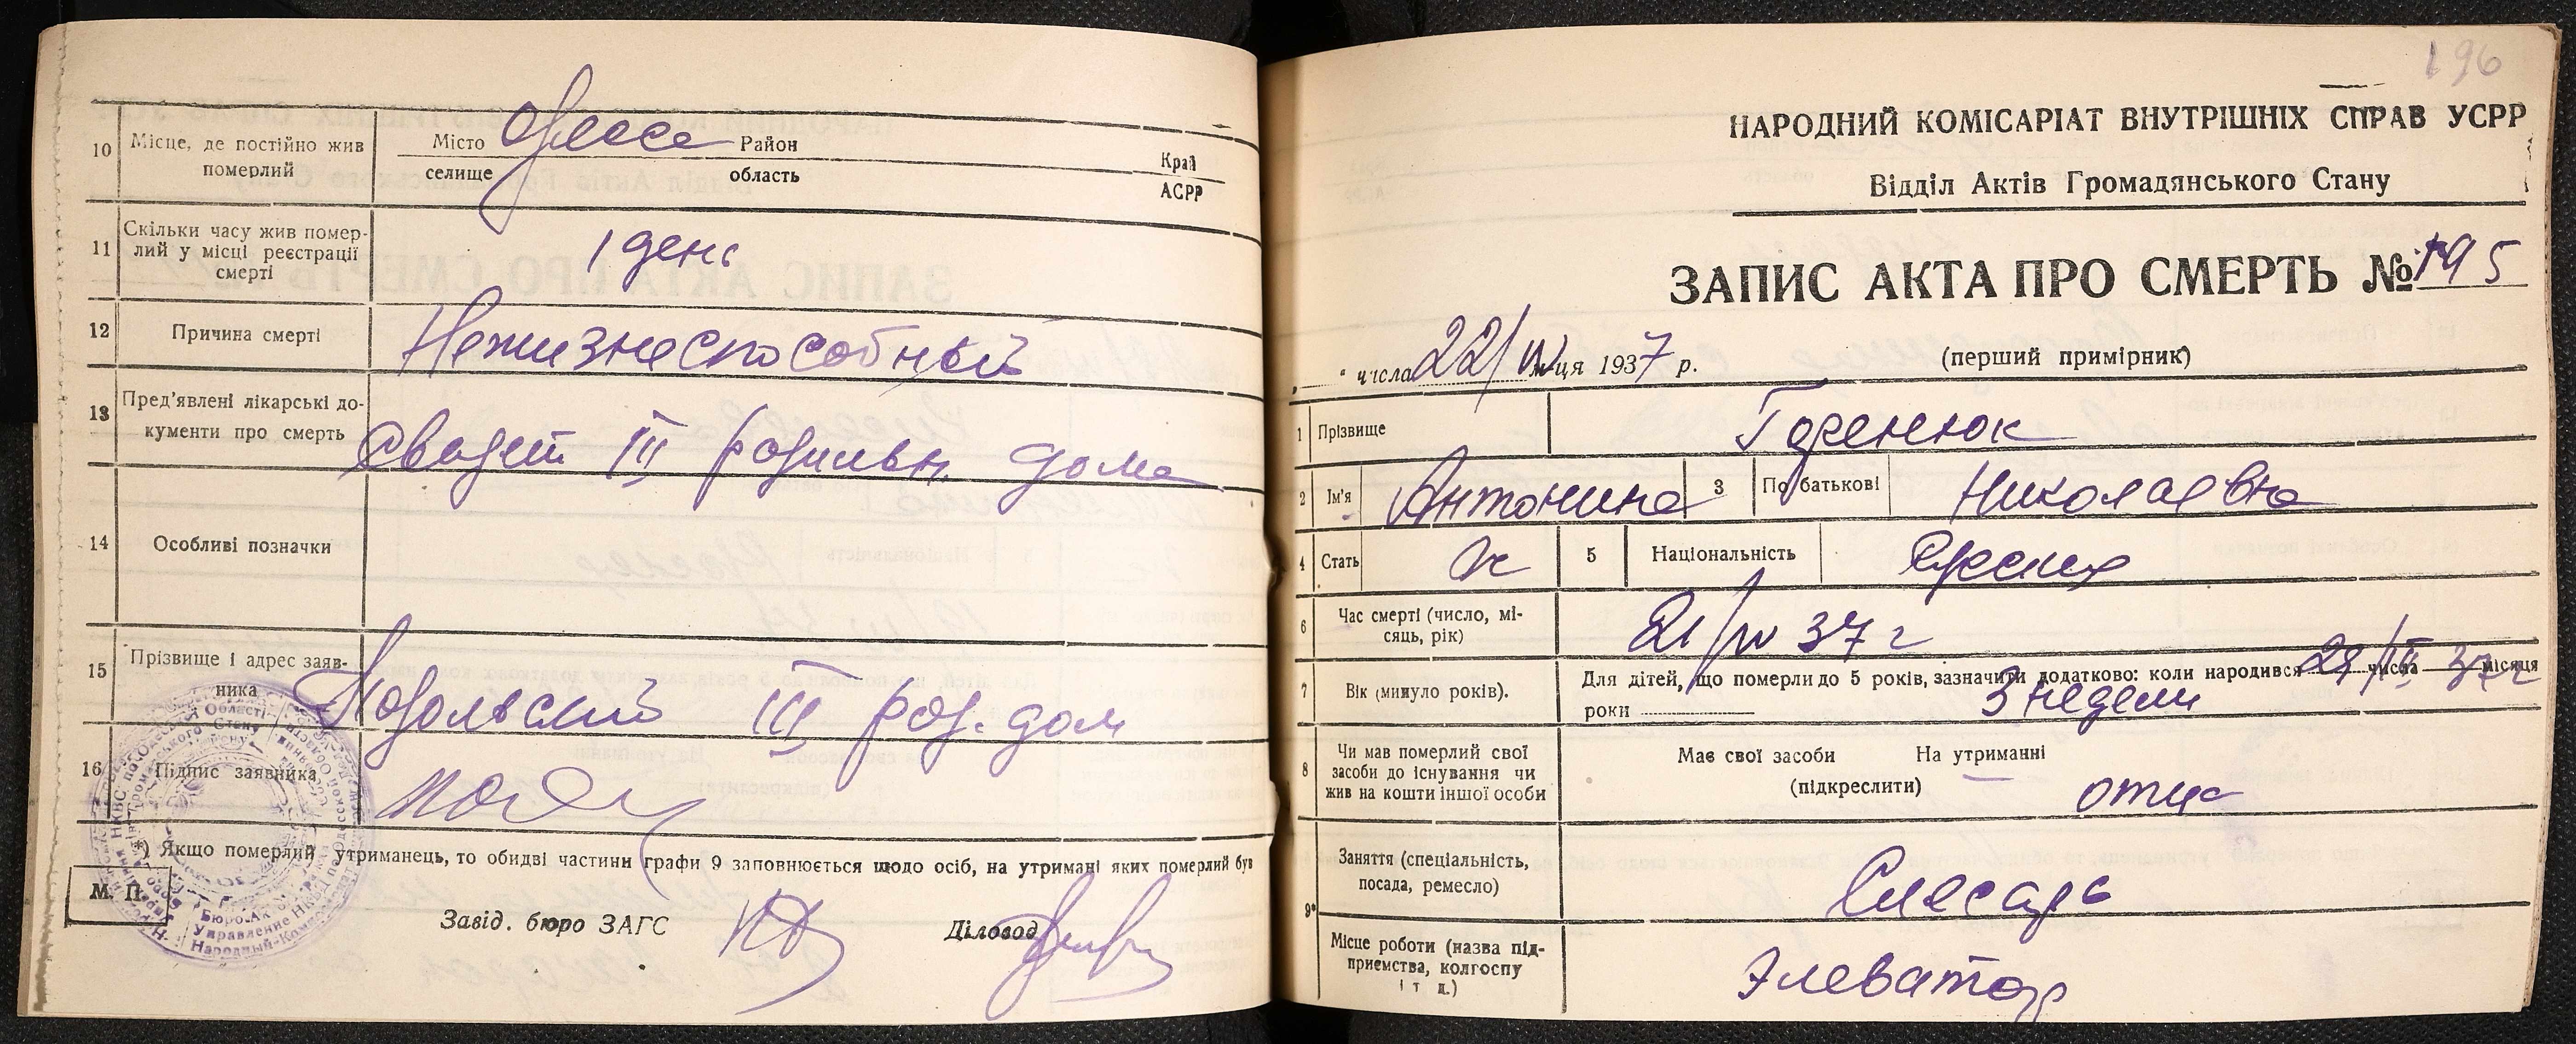 10
Місце, де постійно жив
померлий
Місто Одесса Район
селище область
Край
АСРР
11
Скільки часу жив помер-
лий у місці реєстрації
смерті
1 день
12
Причина смерті
Нежизнеспособный
13
Пред'явлені лікарські до-
кументи про смерть
III родильн. дома
14
Особливі позначки
15
Прізвище і адрес заяв-
ника
Подольский III род. дом
16
Підпис заявника
*) Якщо померлий утриманець, то обидві частини графи 9 заповнюється щодо осіб, на утримані яких померлий був
М. П.
Завід. бюро ЗАГС
Діловод
196
НАРОДНИЙ КОМІСАРІАТ ВНУТРІШНІХ СПРАВ УСРР
Відділ Актів Громадянського Стану
ЗАПИС АКТА ПРО СМЕРТЬ № 195
" числа 22/IV м-ця 1937 р.
(перший примірник)
1
Прізвище
2
Ім'я
Антонина
3
По батькові
Николаевна
4
Стать
ж
5
Національність
6
Час смерті (число, мі-
сяць, рік)
21/IV 37 г
7
Вік (минуло років).
Для дітей, що померли до 5 років, зазначити додатково: коли народився 29/III числа 37 г місяця
роки
3 недели
8
Чи мав померлий свої
засоби до існування чи
жив на кошти іншої особи
Має свої засоби На утриманні
(підкреслити)
отца
9*
Заняття (спеціальність,
посада, ремесло)
Слесарь
Місце роботи (назва під-
приємства, колгоспу
і т д.)
Элеватор